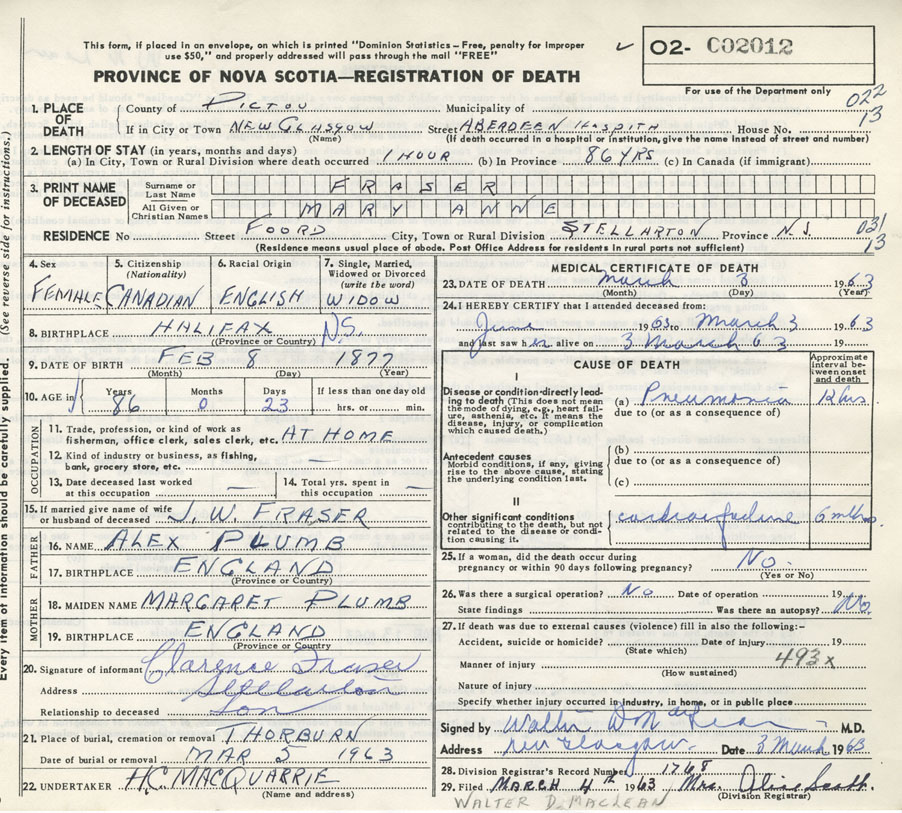 This form, if placed in an envelope, on which is printed "Dominion Statistics – Free, penalty for improper
use $50," and properly addressed will pass through the mail "FREE"
✓ O2- C02012
PROVINCE OF NOVA SCOTIA—REGISTRATION OF DEATH
For use of the Department only
022
13
1. PLACE OF DEATH
County of PICTOU Municipality of
If in City or Town NEW GLASGOW Street ABERDEEN HOSPITH House No.
(Name) (If death occurred in a hospital or institution, give the name instead of street and number)
2. LENGTH OF STAY (in years, months and days)
(a) In City, Town or Rural Division where death occurred 1 HOUR (b) In Province 86 YRS (c) In Canada (if immigrant)
3. PRINT NAME OF DECEASED
Surname or Last Name FRASER
All Given or Christian Names MARY ANNE
RESIDENCE No Street FOORD City, Town or Rural Division STELLARTON Province N.S. 031
13
(Residence means usual place of abode. Post Office Address for residents in rural parts not sufficient)
4. Sex FEMALE
5. Citizenship (Nationality) CANADIAN
6. Racial Origin ENGLISH
7. Single, Married, Widowed or Divorced (write the word) WIDOW
8. BIRTHPLACE HALIFAX N.S.
(Province or Country)
9. DATE OF BIRTH FEB 8 1877
(Month) (Day) (Year)
10. AGE in Years 86 Months 0 Days 23 If less than one day old hrs. or min.
OCCUPATION
11. Trade, profession, or kind of work as
fisherman, office clerk, sales clerk, etc. AT HOME
12. Kind of industry or business, as fishing,
bank, grocery store, etc. —
13. Date deceased last worked
at this occupation —
14. Total yrs. spent in
this occupation —
15. If married give name of wife
or husband of deceased J. W. FRASER
FATHER
16. NAME ALEX PLUMB
17. BIRTHPLACE ENGLAND
(Province or Country)
MOTHER
18. MAIDEN NAME MARGARET PLUMB
19. BIRTHPLACE ENGLAND
(Province or Country
20. Signature of informant Clarence Fraser
Address Stellarton
Relationship to deceased Son
21. Place of burial, cremation or removal THORBURN
Date of burial or removal MAR 5 1963
22. UNDERTAKER H.C. MACQUARRIE
(Name and address)
MEDICAL CERTIFICATE OF DEATH
23. DATE OF DEATH March 3 1963
(Month) (Day) (Year)
24. I HEREBY CERTIFY that I attended deceased from:
June 19 to March 3 1963
and last saw her alive on 3 March 63
CAUSE OF DEATH
Approximate interval between onset and death
I
Disease or condition directly leading
to death (This does not mean
the mode of dying, e.g., heart failure,
asthenia, etc. It means the
disease, injury, or complication
which caused death.)
(a) Pneumonia 12 hrs
due to (or as a consequence of)
Antecedent causes
Morbid conditions, if any, giving
rise to the above cause, stating
the underlying condition last.
(b)
due to (or as a consequence of)
(c)
II
Other significant conditions
contributing to the death, but not
related to the disease or condition
causing it.
cardiac failure 6 mths.
25. If a woman, did the death occur during
pregnancy or within 90 days following pregnancy? No.
(Yes or No)
26. Was there a surgical operation? No Date of operation 19
State findings Was there an autopsy? No
27. If death was due to external causes (violence) fill in also the following:–
Accident, suicide or homicide? Date of injury 19
(State which)
Manner of injury 493x
(How sustained)
Nature of injury
Specify whether injury occurred in industry, in home, or in public place
Signed by Walter D MacLean M.D.
Address New Glasgow Date 3 March 1963
28. Division Registrar's Record Number 1768
29. Filed MARCH 4th 1963 Mrs. Alice Scott.
(Division Registrar)
WALTER D. MACLEAN
Every item of information should be carefully supplied. (See reverse side for instructions.)